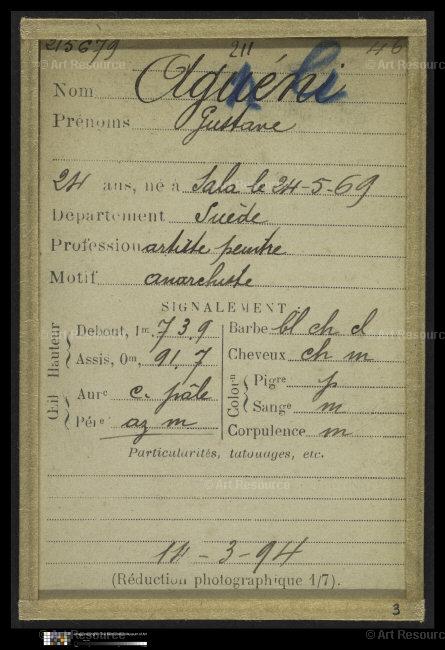 213679 211 46
Nom Aguéhi
Prénoms Gustave
24 ans, né à Sala le 24-5-69
Département Suède
Profession artiste peintre
Motif anarchiste
SIGNALEMENT
Hauteur
Debout, 1m, 73,9
Assis, 0m, 91,7
Œil
Aure c. pâle
Pére az m
Barbe bl ch cl
Cheveux ch m
Colorn
Pigre p
Sange m
Corpulence m
Particularités, tatouages, etc.
14-3-94
(Réduction photographique 1/7).
3
© Art Resource